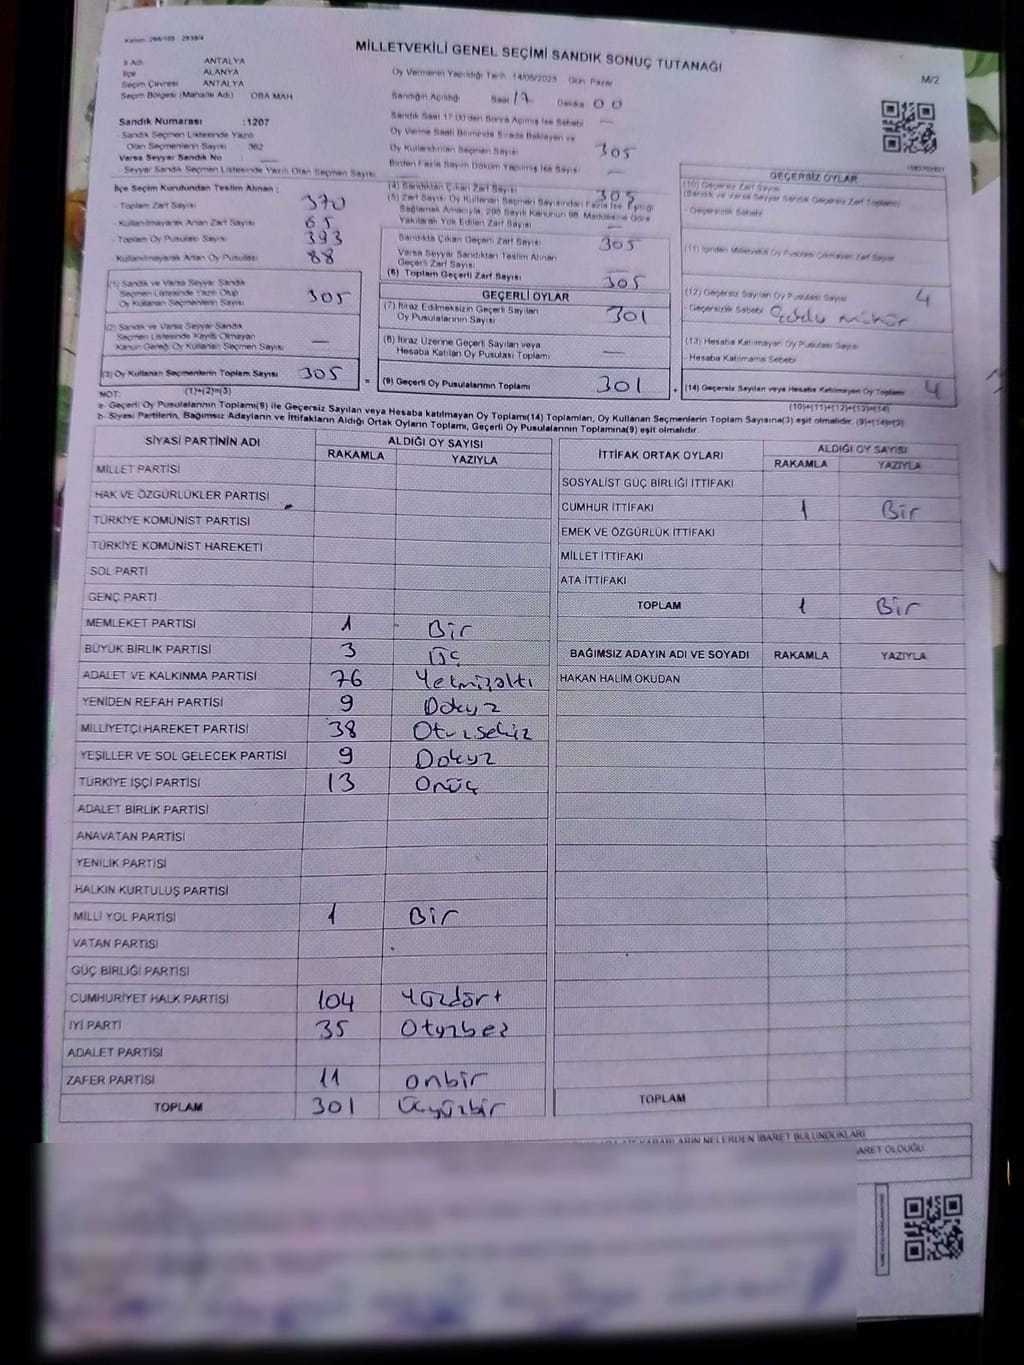 MİLLETVEKİLİ GENEL SEÇİMİ SANDIK SONUÇ TUTANAĞI
M/2
İl Adı ANTALYA
İlçe ALANYA
Seçim Çevresi ANTALYA
Seçim Bölgesi (Mahalle Adı) OBA MAH
Oy Vermenin Yapıldığı Tarih 14/05/2023 Gün Pazar
Sandığın Açıldığı Saat 17 Dakika 00
Sandık Numarası : 1207
Sandık Seçmen Listesinde Yazılı
Olan Seçmenlerin Sayısı 362
Varsa Seyyar Sandık No
Seyyar Sandık Seçmen Listesinde Yazılı Olan Seçmen Sayısı
Sandık Saat 17.00'den Sonra Açılmış İse Sebebi
Oy Verme Saati Bitiminde Sırada Bekleyen ve
Oy Kullandırılan Seçmen Sayısı 305
Birden Fazla Sayım Döküm Yapılmış İse Sayısı
İlçe Seçim Kurulundan Teslim Alınan :
- Toplam Zarf Sayısı 370
- Kullanılmayarak Artan Zarf Sayısı 65
- Toplam Oy Pusulası Sayısı 393
- Kullanılmayarak Artan Oy Pusulası 88
(1) Sandık ve Varsa Seyyar Sandık
Seçmen Listesinde Yazılı Olup
Oy Kullanan Seçmenlerin Sayısı 305
(2) Sandık ve Varsa Seyyar Sandık
Seçmen Listesinde Kayıtlı Olmayan
Kanun Gereği Oy Kullanan Seçmen Sayısı —
(3) Oy Kullanan Seçmenlerin Toplam Sayısı 305
(1)+(2)=(3)
(4) Sandıktan Çıkan Zarf Sayısı 305
(5) Zarf Sayısı Oy Kullanan Seçmen Sayısından Fazla İse, Eşitliği
Sağlamak Amacıyla, 298 Sayılı Kanunun 98. Maddesine Göre
Yakılarak Yok Edilen Zarf Sayısı —
Sandıkta Çıkan Geçerli Zarf Sayısı 305
Varsa Seyyar Sandıktan Teslim Alınan
Geçerli Zarf Sayısı —
(6) Toplam Geçerli Zarf Sayısı 305
GEÇERLİ OYLAR
(7) İtiraz Edilmeksizin Geçerli Sayılan
Oy Pusulalarının Sayısı 301
(8) İtiraz Üzerine Geçerli Sayılan veya
Hesaba Katılan Oy Pusulası Toplamı —
= (9) Geçerli Oy Pusulalarının Toplamı 301
GEÇERSİZ OYLAR
(10) Geçersiz Zarf Sayısı
(Sandık ve Varsa Seyyar Sandık Geçersiz Zarf Toplamı)
- Geçersizlik Sebebi
(11) İçinden Milletvekili Oy Pusulası Çıkmayan Zarf Sayısı
(12) Geçersiz Sayılan Oy Pusulası Sayısı 4
- Geçersizlik Sebebi mühür
(13) Hesaba Katılmayan Oy Pusulası Sayısı
- Hesaba Katılmama Sebebi
+ (14) Geçersiz Sayılan veya Hesaba Katılmayan Oy Toplamı 4
(10)+(11)+(12)+(13)=(14)
NOT:
a- Geçerli Oy Pusulalarının Toplamı(9) ile Geçersiz Sayılan veya Hesaba katılmayan Oy Toplamı(14) Toplamları, Oy Kullanan Seçmenlerin Toplam Sayısına(3) eşit olmalıdır. (9)+(14)=(3)
b- Siyasi Partilerin, Bağımsız Adayların ve İttifakların Aldığı Ortak Oyların Toplamı, Geçerli Oy Pusulalarının Toplamına(9) eşit olmalıdır.
SİYASİ PARTİNİN ADI ALDIĞI OY SAYISI
RAKAMLA YAZIYLA
MİLLET PARTİSİ
HAK VE ÖZGÜRLÜKLER PARTİSİ
TÜRKİYE KOMÜNİST PARTİSİ
TÜRKİYE KOMÜNİST HAREKETİ
SOL PARTİ
GENÇ PARTİ
MEMLEKET PARTİSİ 1 Bir
BÜYÜK BİRLİK PARTİSİ 3 Üç
ADALET VE KALKINMA PARTİSİ 76 Yetmişaltı
YENİDEN REFAH PARTİSİ 9 Dokuz
MİLLİYETÇİ HAREKET PARTİSİ 38 Otuzsekiz
YEŞİLLER VE SOL GELECEK PARTİSİ 9 Dokuz
TÜRKİYE İŞÇİ PARTİSİ 13 Onüç
ADALET BİRLİK PARTİSİ
ANAVATAN PARTİSİ
YENİLİK PARTİSİ
HALKIN KURTULUŞ PARTİSİ
MİLLİ YOL PARTİSİ 1 Bir
VATAN PARTİSİ
GÜÇ BİRLİĞİ PARTİSİ
CUMHURİYET HALK PARTİSİ 104 Yüzdört
İYİ PARTİ 35 Otuzbeş
ADALET PARTİSİ
ZAFER PARTİSİ 11 onbir
TOPLAM 301 Üçyüzbir
İTTİFAK ORTAK OYLARI ALDIĞI OY SAYISI
RAKAMLA YAZIYLA
SOSYALİST GÜÇ BİRLİĞİ İTTİFAKI
CUMHUR İTTİFAKI 1 Bir
EMEK VE ÖZGÜRLÜK İTTİFAKI
MİLLET İTTİFAKI
ATA İTTİFAKI
TOPLAM 1 Bir
BAĞIMSIZ ADAYIN ADI VE SOYADI RAKAMLA YAZIYLA
HAKAN HALİM OKUDAN
TOPLAM
KARARLARIN NELERDEN İBARET BULUNDUKLARI
ARET OLDUĞU